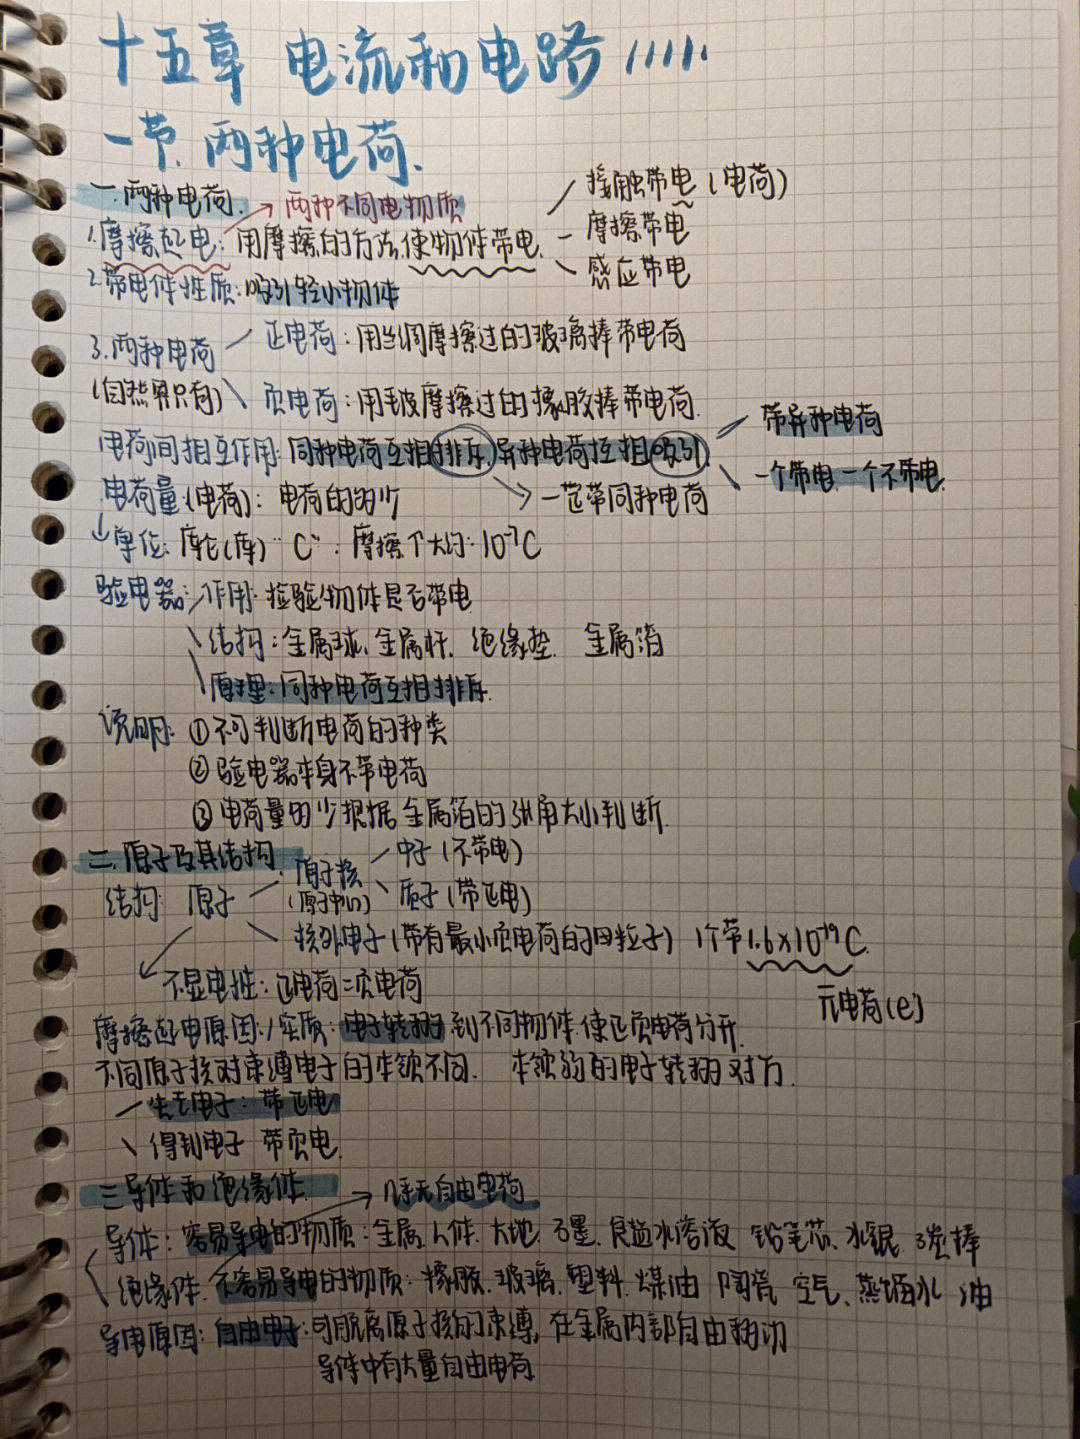 十五章 电流和电路
一节.两种电荷.
一.两种电荷.
两种不同电物质
接触带电(电荷)
1.摩擦起电:用摩擦的方法使物体带电
摩擦带电
感应带电
2.带电体性质:吸引轻小物体
3.两种电荷
(自然界只有)
正电荷:用丝绸摩擦过的玻璃棒带电荷
负电荷:用毛皮摩擦过的橡胶棒带电荷.
电荷间相互作用:同种电荷互相排斥.异种电荷互相吸引.
带异种电荷
一个带电 一个不带电.
一定带同种电荷
电荷量(电荷):电荷的多少
单位:库仑(库)"C":摩擦 大约:10⁻⁷C
验电器:作用:检验物体是否带电
结构:金属球.金属杆.绝缘垫.金属箔
原理:同种电荷互相排斥.
说明:①不可判断电荷的种类
②验电器本身不带电荷
③电荷量多少根据金属箔的张角大小判断.
二.原子及其结构.
结构:原子
原子核
(原子中心)
中子(不带电)
质子(带正电)
核外电子(带有最小负电荷的 粒子) 1个带1.6×10⁻¹⁹C.
元电荷(e)
不显电性:正电荷=负电荷
摩擦起电原因/实质:电子转移到不同物体.使正负电荷分开.
不同原子核对束缚电子的本领不同. 本领弱的电子转移对方.
失去电子:带正电
得到电子 带负电.
三.导体和绝缘体.
几乎无自由电荷
导体:容易导电的物质:金属.人体.大地.石墨.食盐水溶液 铅笔芯.水银.碳棒
绝缘体.不容易导电的物质:橡胶.玻璃.塑料.煤油 陶瓷 空气、蒸馏水 油
导电原因:自由电子:可脱离原子核的束缚,在金属内部自由移动
导体中有大量自由电荷